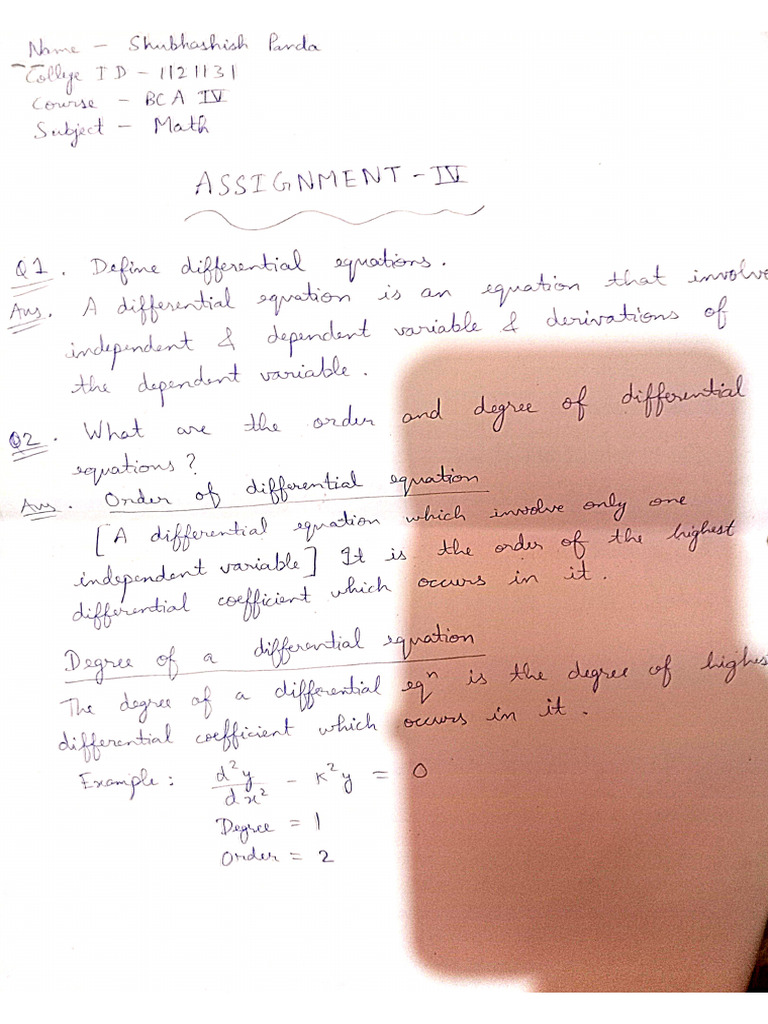 Name - Shubhashish Panda
College ID - 1121131
Course - BCA IV
Subject - Math
ASSIGNMENT - IV
Q1. Define differential equations.
Ans. A differential equation is an equation that involve
independent & dependent variable & derivations of
the dependent variable.
Q2. What are the order and degree of differential
equations?
Ans. Order of differential equation
[A differential equation which involve only one
independent variable] It is the order of the highest
differential coefficient which occurs in it.
Degree of a differential equation
The degree of a differential eqⁿ is the degree of highes
differential coefficient which occurs in it.
Example: d²y/dx² - K²y = 0
Degree = 1
Order = 2